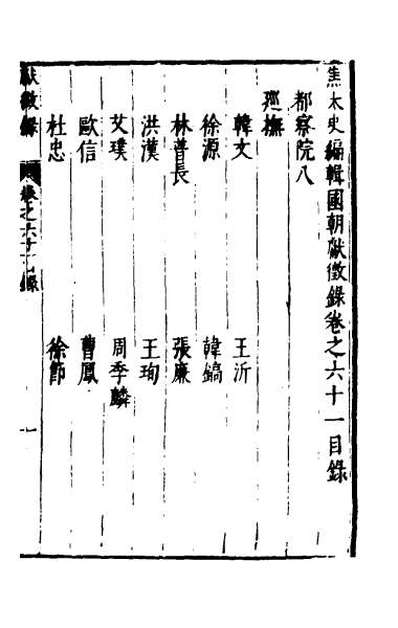 焦太史編輯國朝獻徵錄卷之六十一目錄
都察院八
巡撫
韓文　王沂
徐源　韓鎬
林普長　張廉
洪漢　王珣
艾璞　周季麟
歐信　曹鳳
杜忠　徐節
獻徵錄　卷之六十一目錄　一